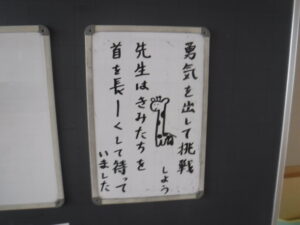 勇気を出して挑戦
しよう
先生はきみたちを
首を長ーくして待って
いました